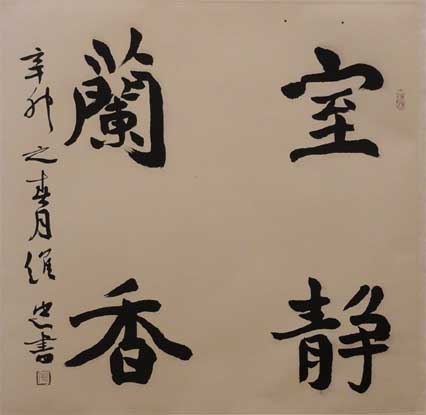 室静
蘭香
辛卯之春月維忠書